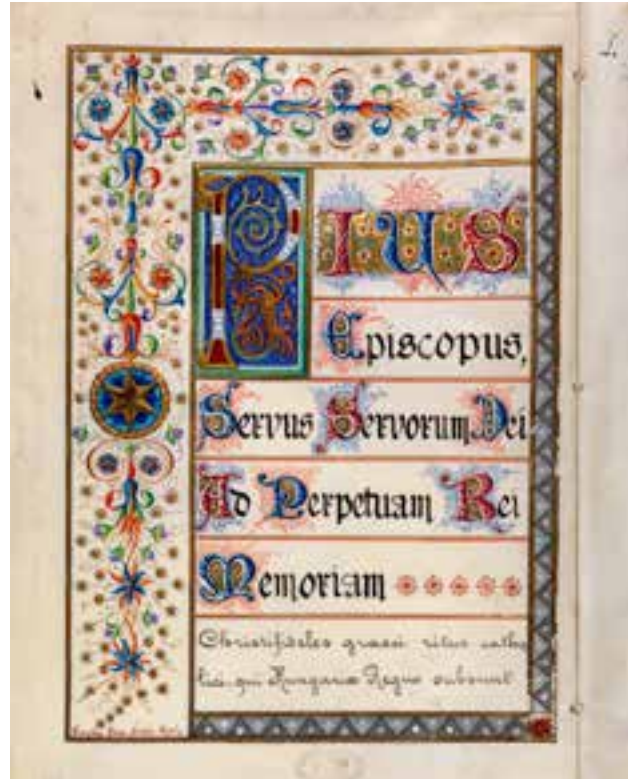 PIUS
Episcopus,
Servus Servorum Dei
Ad Perpetuam Rei
Memoriam
Christifideles graeci ritus catho
lici qui Hungariae Regno subsunt